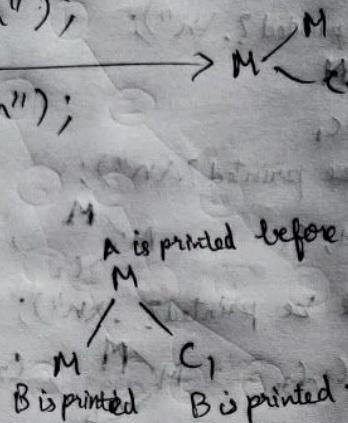 ");
M
M
n");
A is printed before
M
M C1
B is printed B is printed